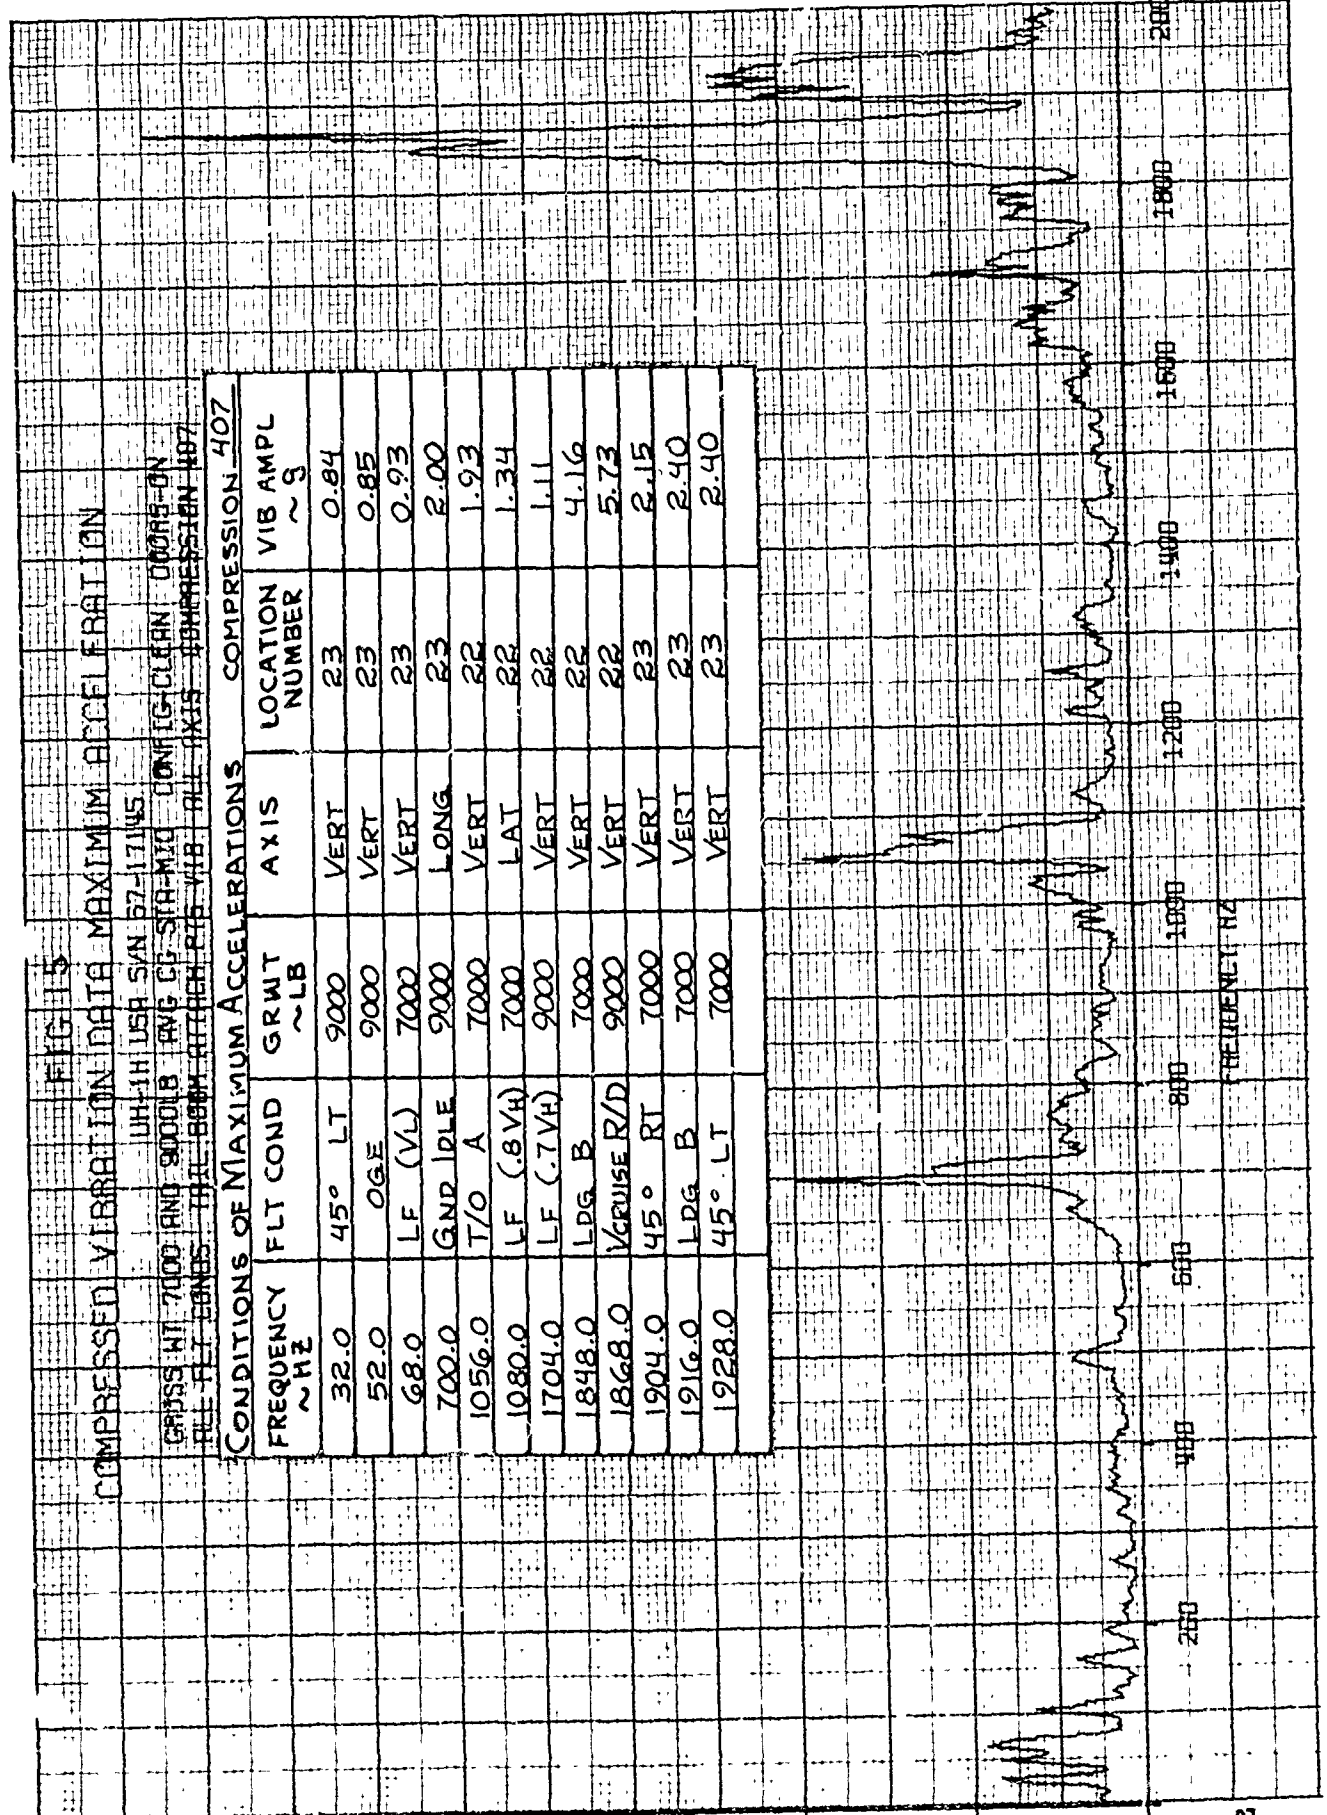 FIG 15
COMPRESSED VIBRATION DATA MAXIMUM ACCELERATION
UH-1H USA S/N 67-17145
GROSS WT 7000 AND 9000LB AVG CG STA-MID CONFIG-CLEAN DOORS-ON
ALL FLT CONDS TAIL BOOM ATTACH PTS VIB ALL AXIS COMPRESSION 407
CONDITIONS OF MAXIMUM ACCELERATIONS COMPRESSION 407
FREQUENCY ~HZ FLT COND GRWT ~LB AXIS LOCATION NUMBER VIB AMPL ~g
32.0 45° LT 9000 VERT 23 0.84
52.0 OGE 9000 VERT 23 0.85
68.0 LF (VL) 7000 VERT 23 0.93
700.0 GND IDLE 9000 LONG 23 2.00
1056.0 T/O A 7000 VERT 22 1.93
1080.0 LF (.8 VH) 7000 LAT 22 1.34
1704.0 LF (.7 VH) 9000 VERT 22 1.11
1848.0 LDG B 7000 VERT 22 4.16
1868.0 VCRUISE R/D 9000 VERT 22 5.73
1904.0 45° RT 7000 VERT 23 2.15
1916.0 LDG B 7000 VERT 23 2.40
1928.0 45° LT 7000 VERT 23 2.40
200 400 600 800 1000 1200 1400 1600 1800 200
FREQUENCY HZ